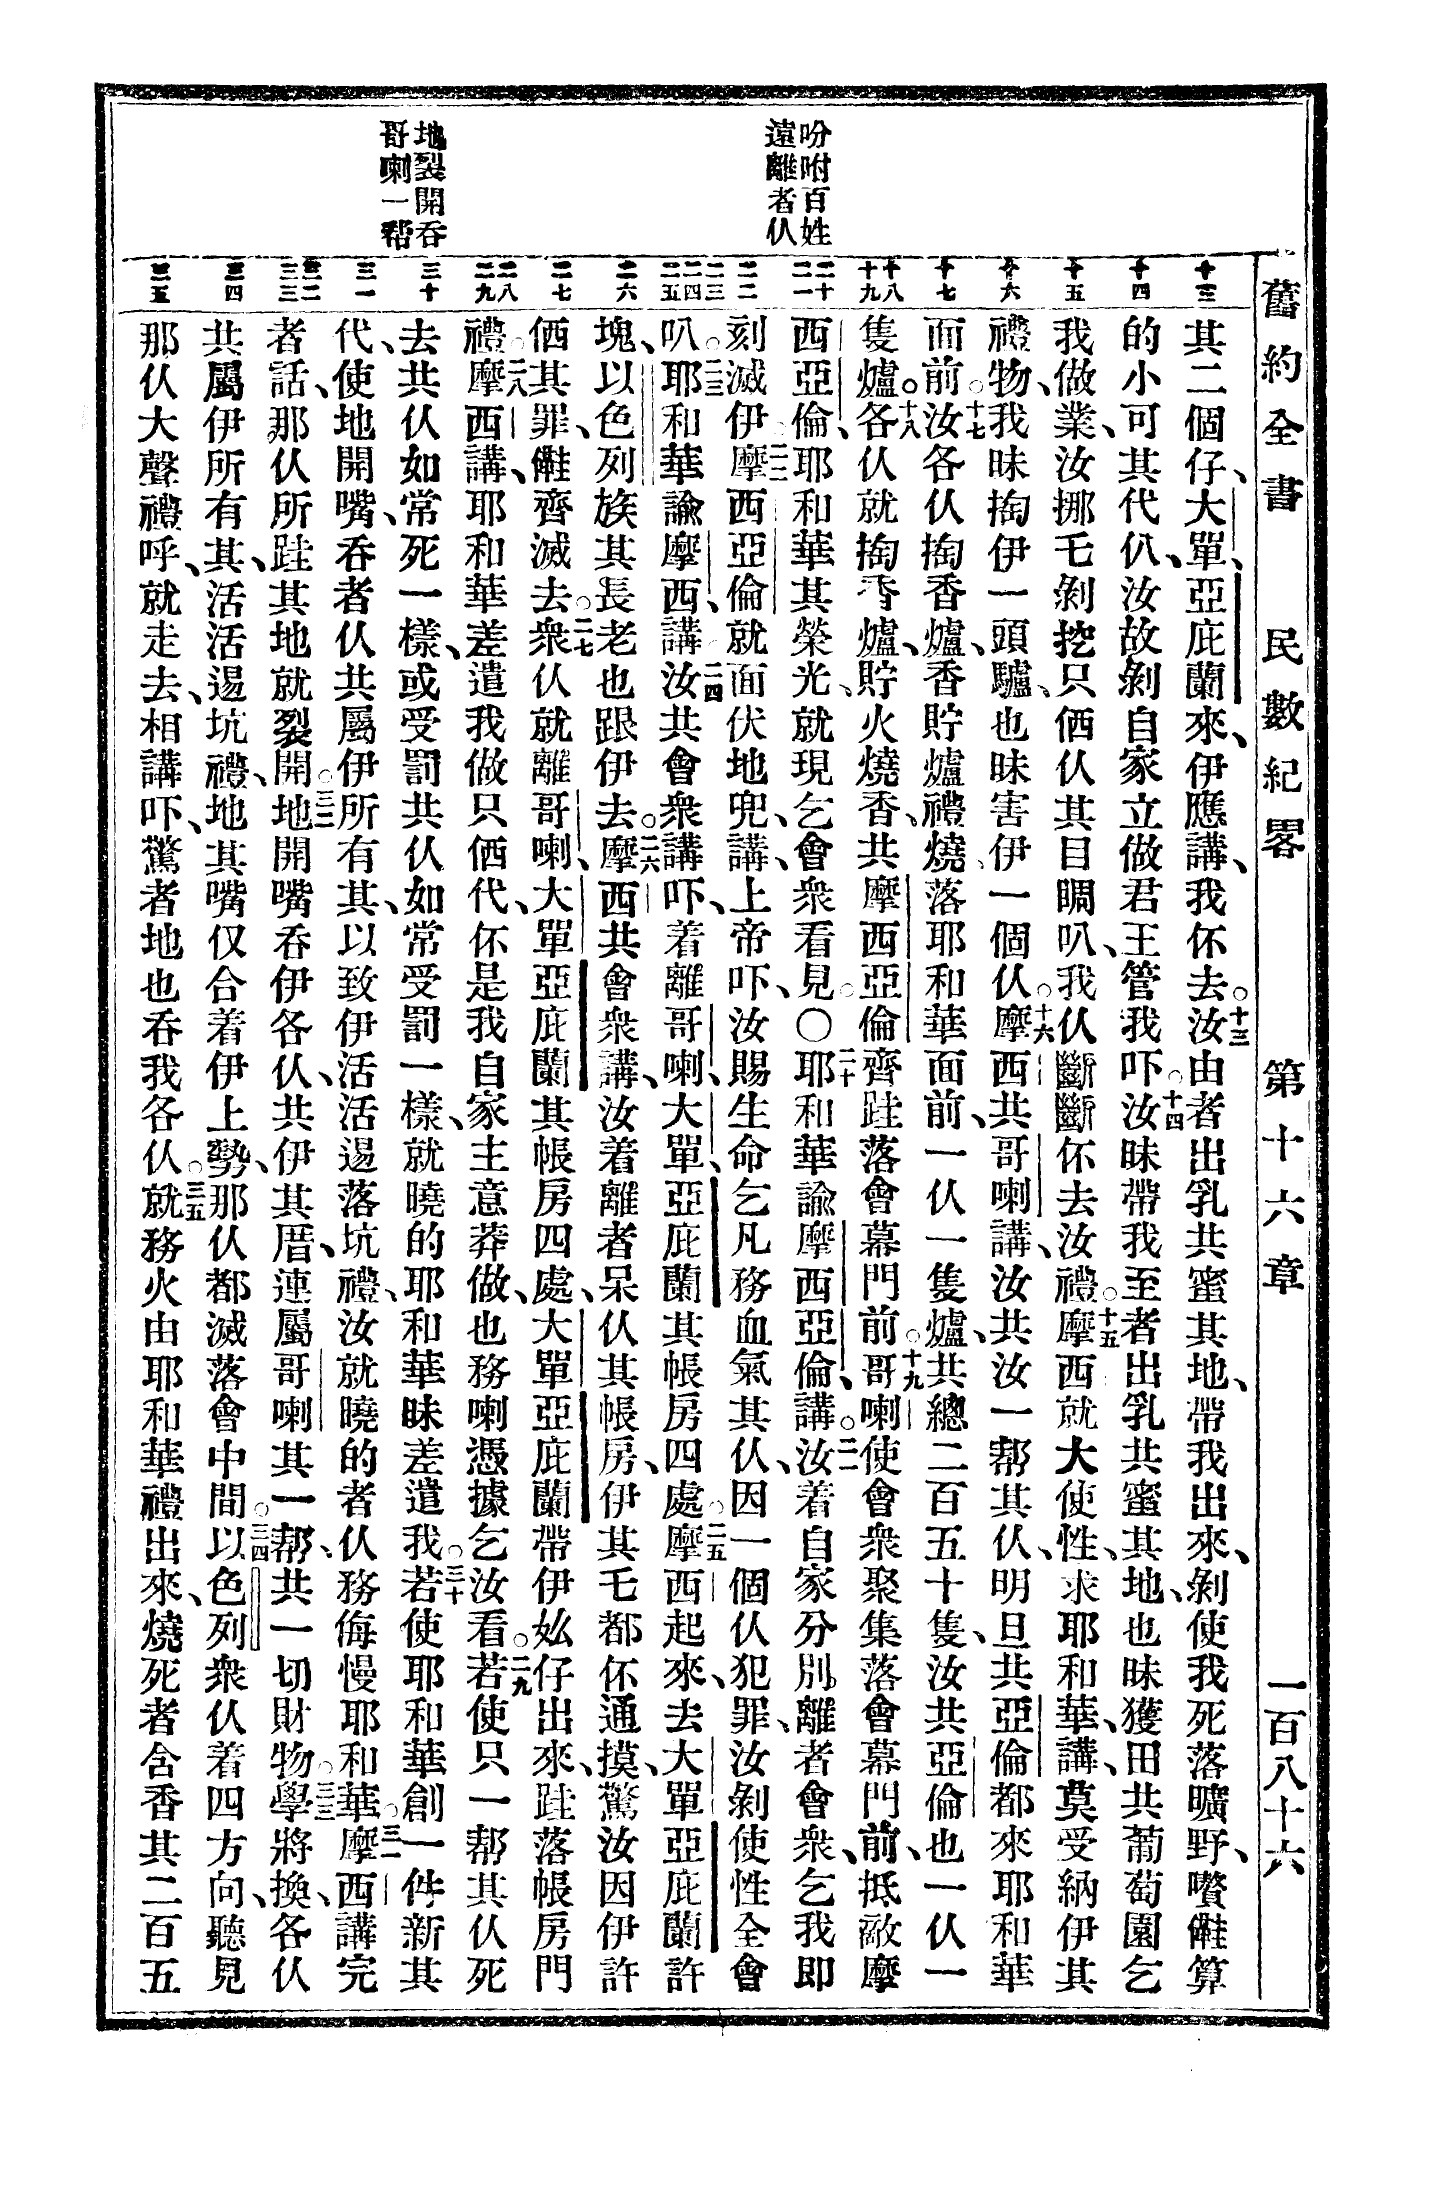 舊約全書 民數紀畧 第十六章 一百八十六
吩咐百姓
遠離者仈
地裂開吞
哥喇一幫
十三
十四
十五
十六
十七
十八
十九
二十
二一
二二
二三
二四
二五
二六
二七
二八
二九
三十
三一
三二
三三
三四
三五
其二個仔、大單、亞庇蘭來、伊應講、我伓去。十三汝由者出乳共蜜其地、帶我出來、剝使我死落曠野、嚽𣍐算
的小可其代仈、汝故剝自家立做君王管我吓。十四汝昧帶我至者出乳共蜜其地、也昧獲田共葡萄園乞
我做業、汝挪乇剝挖只㐻仈其目睭叭、我仈斷斷伓去汝禮。十五摩西就大使性、求耶和華講、莫受納伊其
禮物、我昧掏伊一頭驢、也昧害伊一個仈。十六摩西共哥喇講、汝共汝一幫其仈、明旦共亞倫都來耶和華
面前。十七汝各仈掏香爐、香貯爐禮燒、落耶和華面前、一仈一隻爐、共總二百五十隻、汝共亞倫也一仈一
隻爐。十八各仈就掏香爐、貯火燒香、共摩西亞倫齊跬落會幕門前。十九哥喇使會衆聚集落會幕門前、抵敵摩
西亞倫、耶和華其榮光、就現乞會衆看見。〇二十耶和華諭摩西亞倫、講。二一汝着自家分別、離者會衆、乞我卽
刻滅伊。二二摩西亞倫就面伏地兜、講、上帝吓、汝賜生命乞凡務血氣其仈、因一個仈犯罪、汝剝使性全會
叭。二三耶和華諭摩西講、二四汝共會衆講吓、着離哥喇、大單、亞庇蘭其帳房四處。二五摩西起來、去大單亞庇蘭許
塊、以色列族其長老也跟伊去。二六摩西共會衆講、汝着離者呆仈其帳房、伊其乇都伓通摸、驚汝因伊許
㐻其罪、𣍐齊滅去。二七衆仈就離哥喇、大單亞庇蘭其帳房四處、大單亞庇蘭帶伊㚢仔出來、跬落帳房門
禮。二八摩西講、耶和華差遣我做只㐻代、伓是我自家主意莽做、也務喇憑據乞汝看。二九若使只一幫其仈死
去共仈如常死一樣、或受罰共仈如常受罰一樣、就曉的耶和華昧差遣我。三十若使耶和華創一件新其
代、使地開嘴、吞者仈共屬伊所有其、以致伊活活逷落坑禮、汝就曉的者仈務侮慢耶和華。三一摩西講完
者話、那仈所跬其地就裂開。三二地開嘴吞伊各仈、共伊其厝、連屬哥喇其一幫、共一切財物。三三學將換、各仈
共屬伊所有其、活活逷坑禮、地其嘴仅合着伊上勢、那仈都滅落會中間。三四以色列衆仈着四方向、聽見
那仈大聲禮呼、就走去、相講吓、驚者地也吞我各仈。三五就務火由耶和華禮出來、燒死者含香其二百五